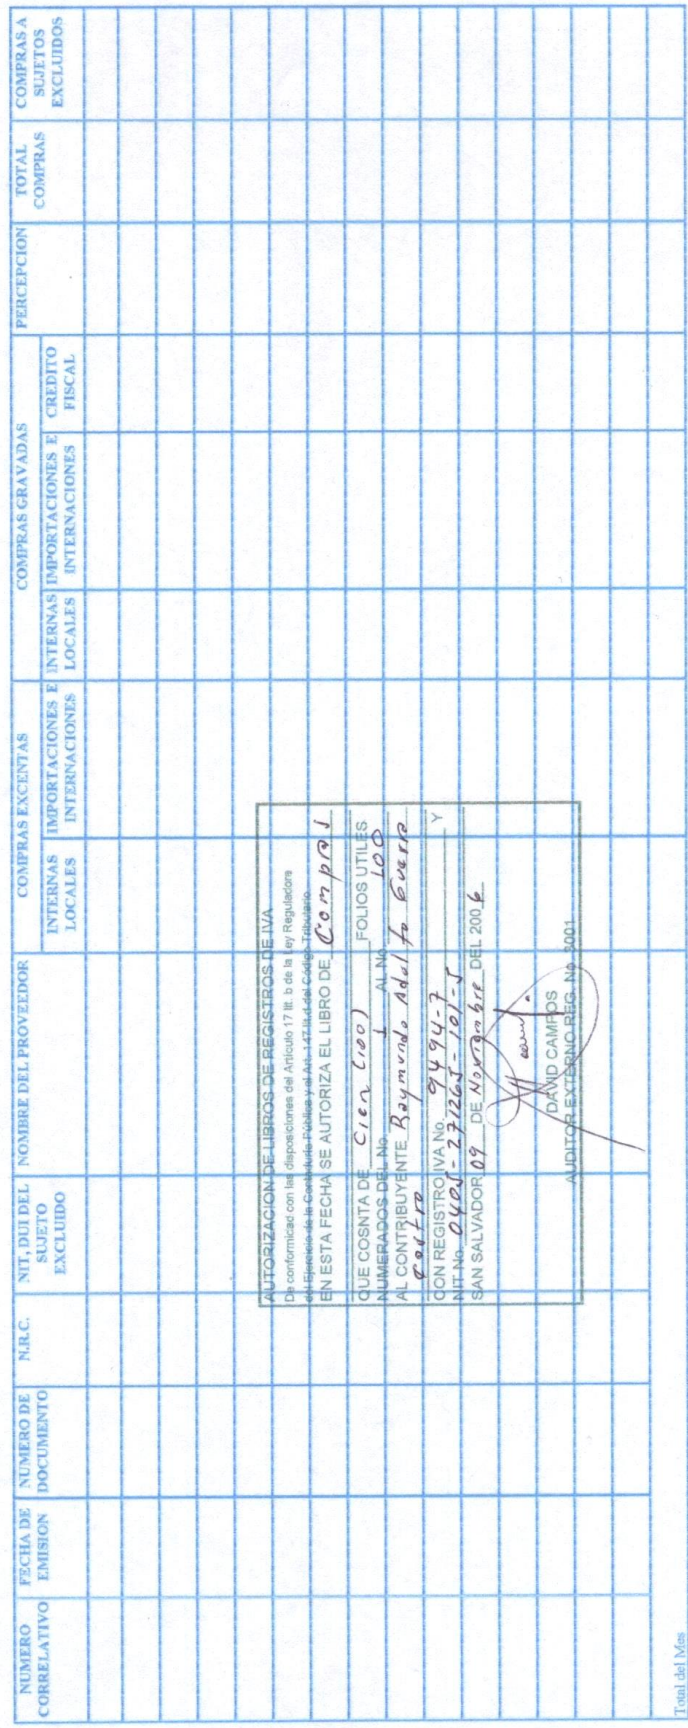 NUMERO CORRELATIVO
FECHA DE EMISION
NUMERO DE DOCUMENTO
N.R.C.
NIT, DUI DEL SUJETO EXCLUIDO
NOMBRE DEL PROVEEDOR
COMPRAS EXCENTAS
INTERNAS LOCALES
IMPORTACIONES E INTERNACIONES
COMPRAS GRAVADAS
INTERNAS LOCALES
IMPORTACIONES E INTERNACIONES
CREDITO FISCAL
PERCEPCION
TOTAL COMPRAS
COMPRAS A SUJETOS EXCLUIDOS
AUTORIZACION DE LIBROS DE REGISTROS DE IVA
De conformidad con las disposiciones del Artículo 17 lit. b de la Ley Reguladora
del Ejercicio de la Contaduría Pública y el Art. 147 lit.d del Código Tributario
EN ESTA FECHA SE AUTORIZA EL LIBRO DE Compras
QUE COSNTA DE Cien (100) FOLIOS UTILES
NUMERADOS DEL No. 1 AL No. 100
AL CONTRIBUYENTE Raymundo Adolfo Guerra
Castro
CON REGISTRO IVA No. 9494-7 Y
NIT No. 0405-271265-101-5
SAN SALVADOR 09 DE Noviembre DEL 2006
DAVID CAMPOS
AUDITOR EXTERNO REG. No. 3001
Total del Mes